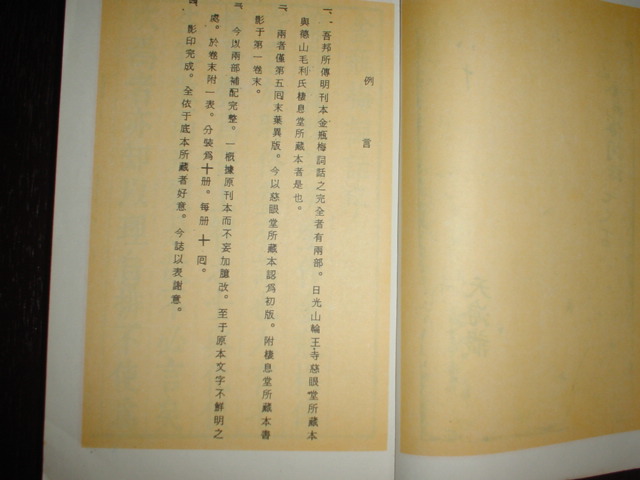 例言
一、吾邦所傳明刊本金瓶梅詞話之完全者有兩部。日光山輪王寺慈眼堂所藏本
與德山毛利氏棲息堂所藏本者是也。
二、兩者僅第五囘末葉異版。今以慈眼堂所藏本認爲初版。附棲息堂所藏本書
影于第一卷末。
三、今以兩部補配完整。一概據原刊本而不妄加臆改。至于原本文字不鮮明之
處。於卷末附一表。分裝爲十册。每册十囘。
四、影印完成。全依于底本所藏者好意。今誌以表謝意。